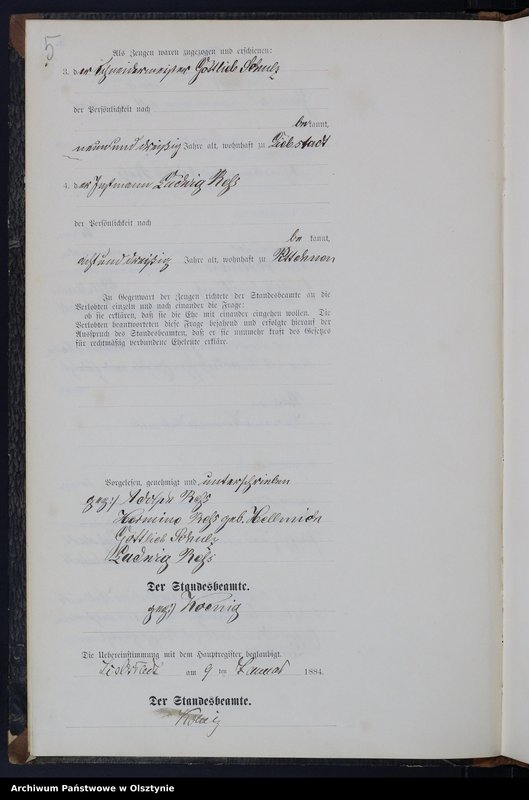 5
Als Zeugen waren zugezogen und erschienen:
3. der Schneidermeister Gottlieb Schulz
der Persönlichkeit nach
bekannt,
neununddreißig Jahre alt, wohnhaft zu Liebstadt
4. der Instmann Ludwig Rehs
der Persönlichkeit nach
bekannt,
achtunddreißig Jahre alt, wohnhaft zu
In Gegenwart der Zeugen richtete der Standesbeamte an die
Verlobten einzeln und nach einander die Frage:
ob sie erklären, daß sie die Ehe mit einander eingehen wollen. Die
Verlobten beantworteten diese Frage bejahend und erfolgte hierauf der
Ausspruch des Standesbeamten, daß er sie nunmehr kraft des Gesetzes
für rechtmäßig verbundene Eheleute erkläre.
Vorgelesen, genehmigt und unterschrieben
gez) Adolph Rehs
Hermine Rehs geb. Hellmich
Gottlieb Schulz
Ludwig Rehs
Der Standesbeamte.
gez) Koenig
Die Uebereinstimmung mit dem Hauptregister beglaubigt.
Liebstadt am 9 ten Januar 1884.
Der Standesbeamte.
Koenig
Archiwum Państwowe w Olsztynie